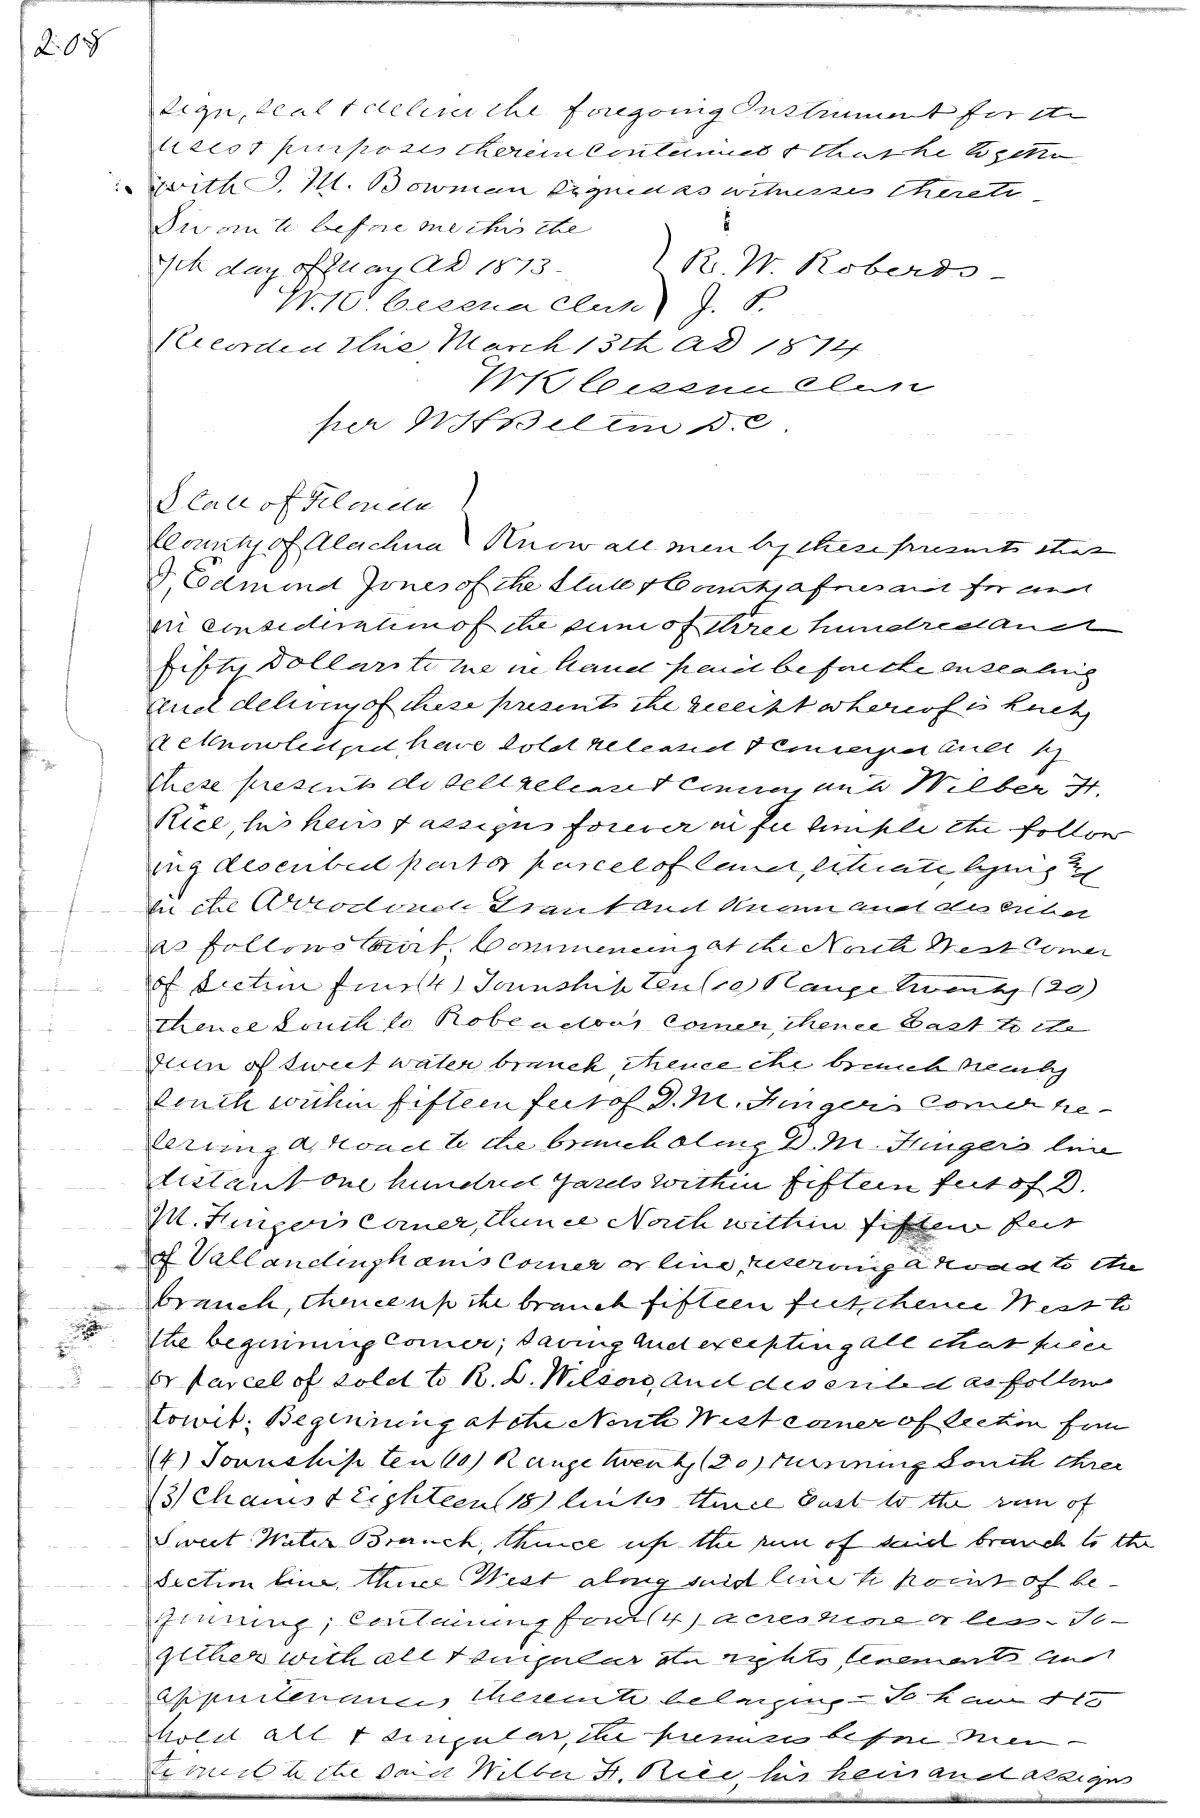 208
sign, seal & deliver the foregoing Instrument for the
uses & purposes therein contained & that he together
with J. M. Bowman signed as witnesses thereto.
Sworn to before me this the
7th day of May AD 1873. } R. W. Roberds
W. K. Cessna Clerk } J. P.
Recorded this March 13th AD 1874
WK Cessna Clerk
per WH Belton D.C.
State of Florida }
County of Alachua } Know all men by these presents that
I, Edmond Jones of the State & County aforesaid for and
in consideration of the sum of three hundred and
fifty Dollars to me in hand paid before the ensealing
and delivery of these presents the receipt whereof is hereby
acknowledged, have sold released & conveyed and by
these presents do sell release & convey unto Wilber H.
Rice, his heirs & assigns forever in fee simple the follow
ing described part or parcel of land, situate, lying and
in the Arrodondo Grant and known and described
as follows towit: Commencing at the North West Corner
of Section four (4) Township ten (10) Range twenty (20)
thence South to corner, thence East to the
run of sweet water branch, thence the branch nearly
South within fifteen feet of D. M. Finger's corner re-
serving a road to the branch along D. M. Finger's line
distant one hundred yards within fifteen feet of D.
M. Finger's corner, thence North within fifteen feet
of Vallandingham's Corner or line, reserving a road to the
branch, thence up the branch fifteen feet, thence West to
the beginning corner; saving and excepting all that piece
or parcel of sold to R. L. Wilson, and described as follows
towit: Beginning at the North West corner of Section four
(4) Township ten (10) Range twenty (20) running South three
(3) Chains & Eighteen (18) links thence East to the run of
Sweet Water Branch, thence up the run of said branch to the
Section line, thence West along said line to point of be-
ginning; containing four (4) acres more or less - To-
gether with all & singular the rights, tenements and
appurtenances thereunto belonging - To have & to
hold all & singular, the premises before men-
tioned to the said Wilber H. Rice, his heirs and assigns